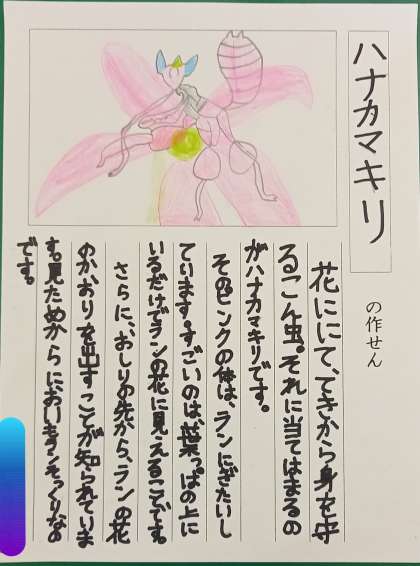 ハナカマキリ
の作せん
花ににて、てきから身を守
るこん虫。それに当てはまるの
がハナカマキリです。
そのピンクの体は、ランにぎたいし
ています。すごいのは、葉っぱの上に
いるだけでランの花に見えることです。
さらに、おしりの先から、ランの花
のかおりを出すことが知られていま
す。見ためからにおいもランそっくりなの
です。